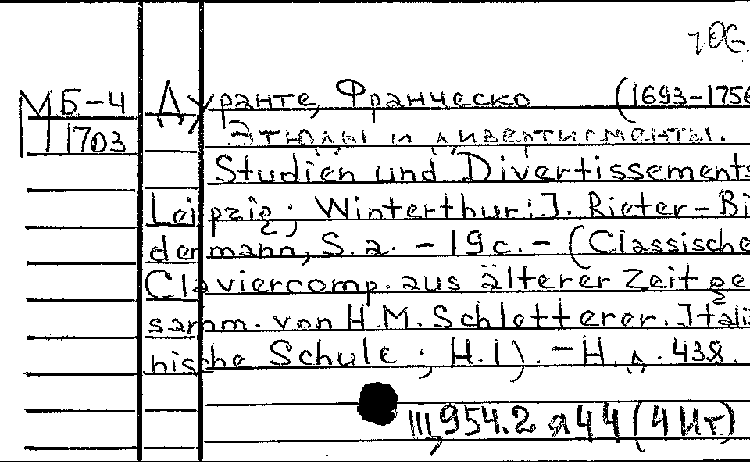 706
МБ-4 Дуранте, Франческо (1693-1756
1703 Этюды и дивертисменты.
Studien und Divertissements
Leipzig; Winterthur: J. Rieter-Bi
dermann, S.a. - 19c. - (Classische
Claviercomp. aus älterer Zeit ge
samm. von H.M. Schletterer. Itali
nische Schule; H.1). - Н.д. 438.
III,954.2 я44 (4Ит)